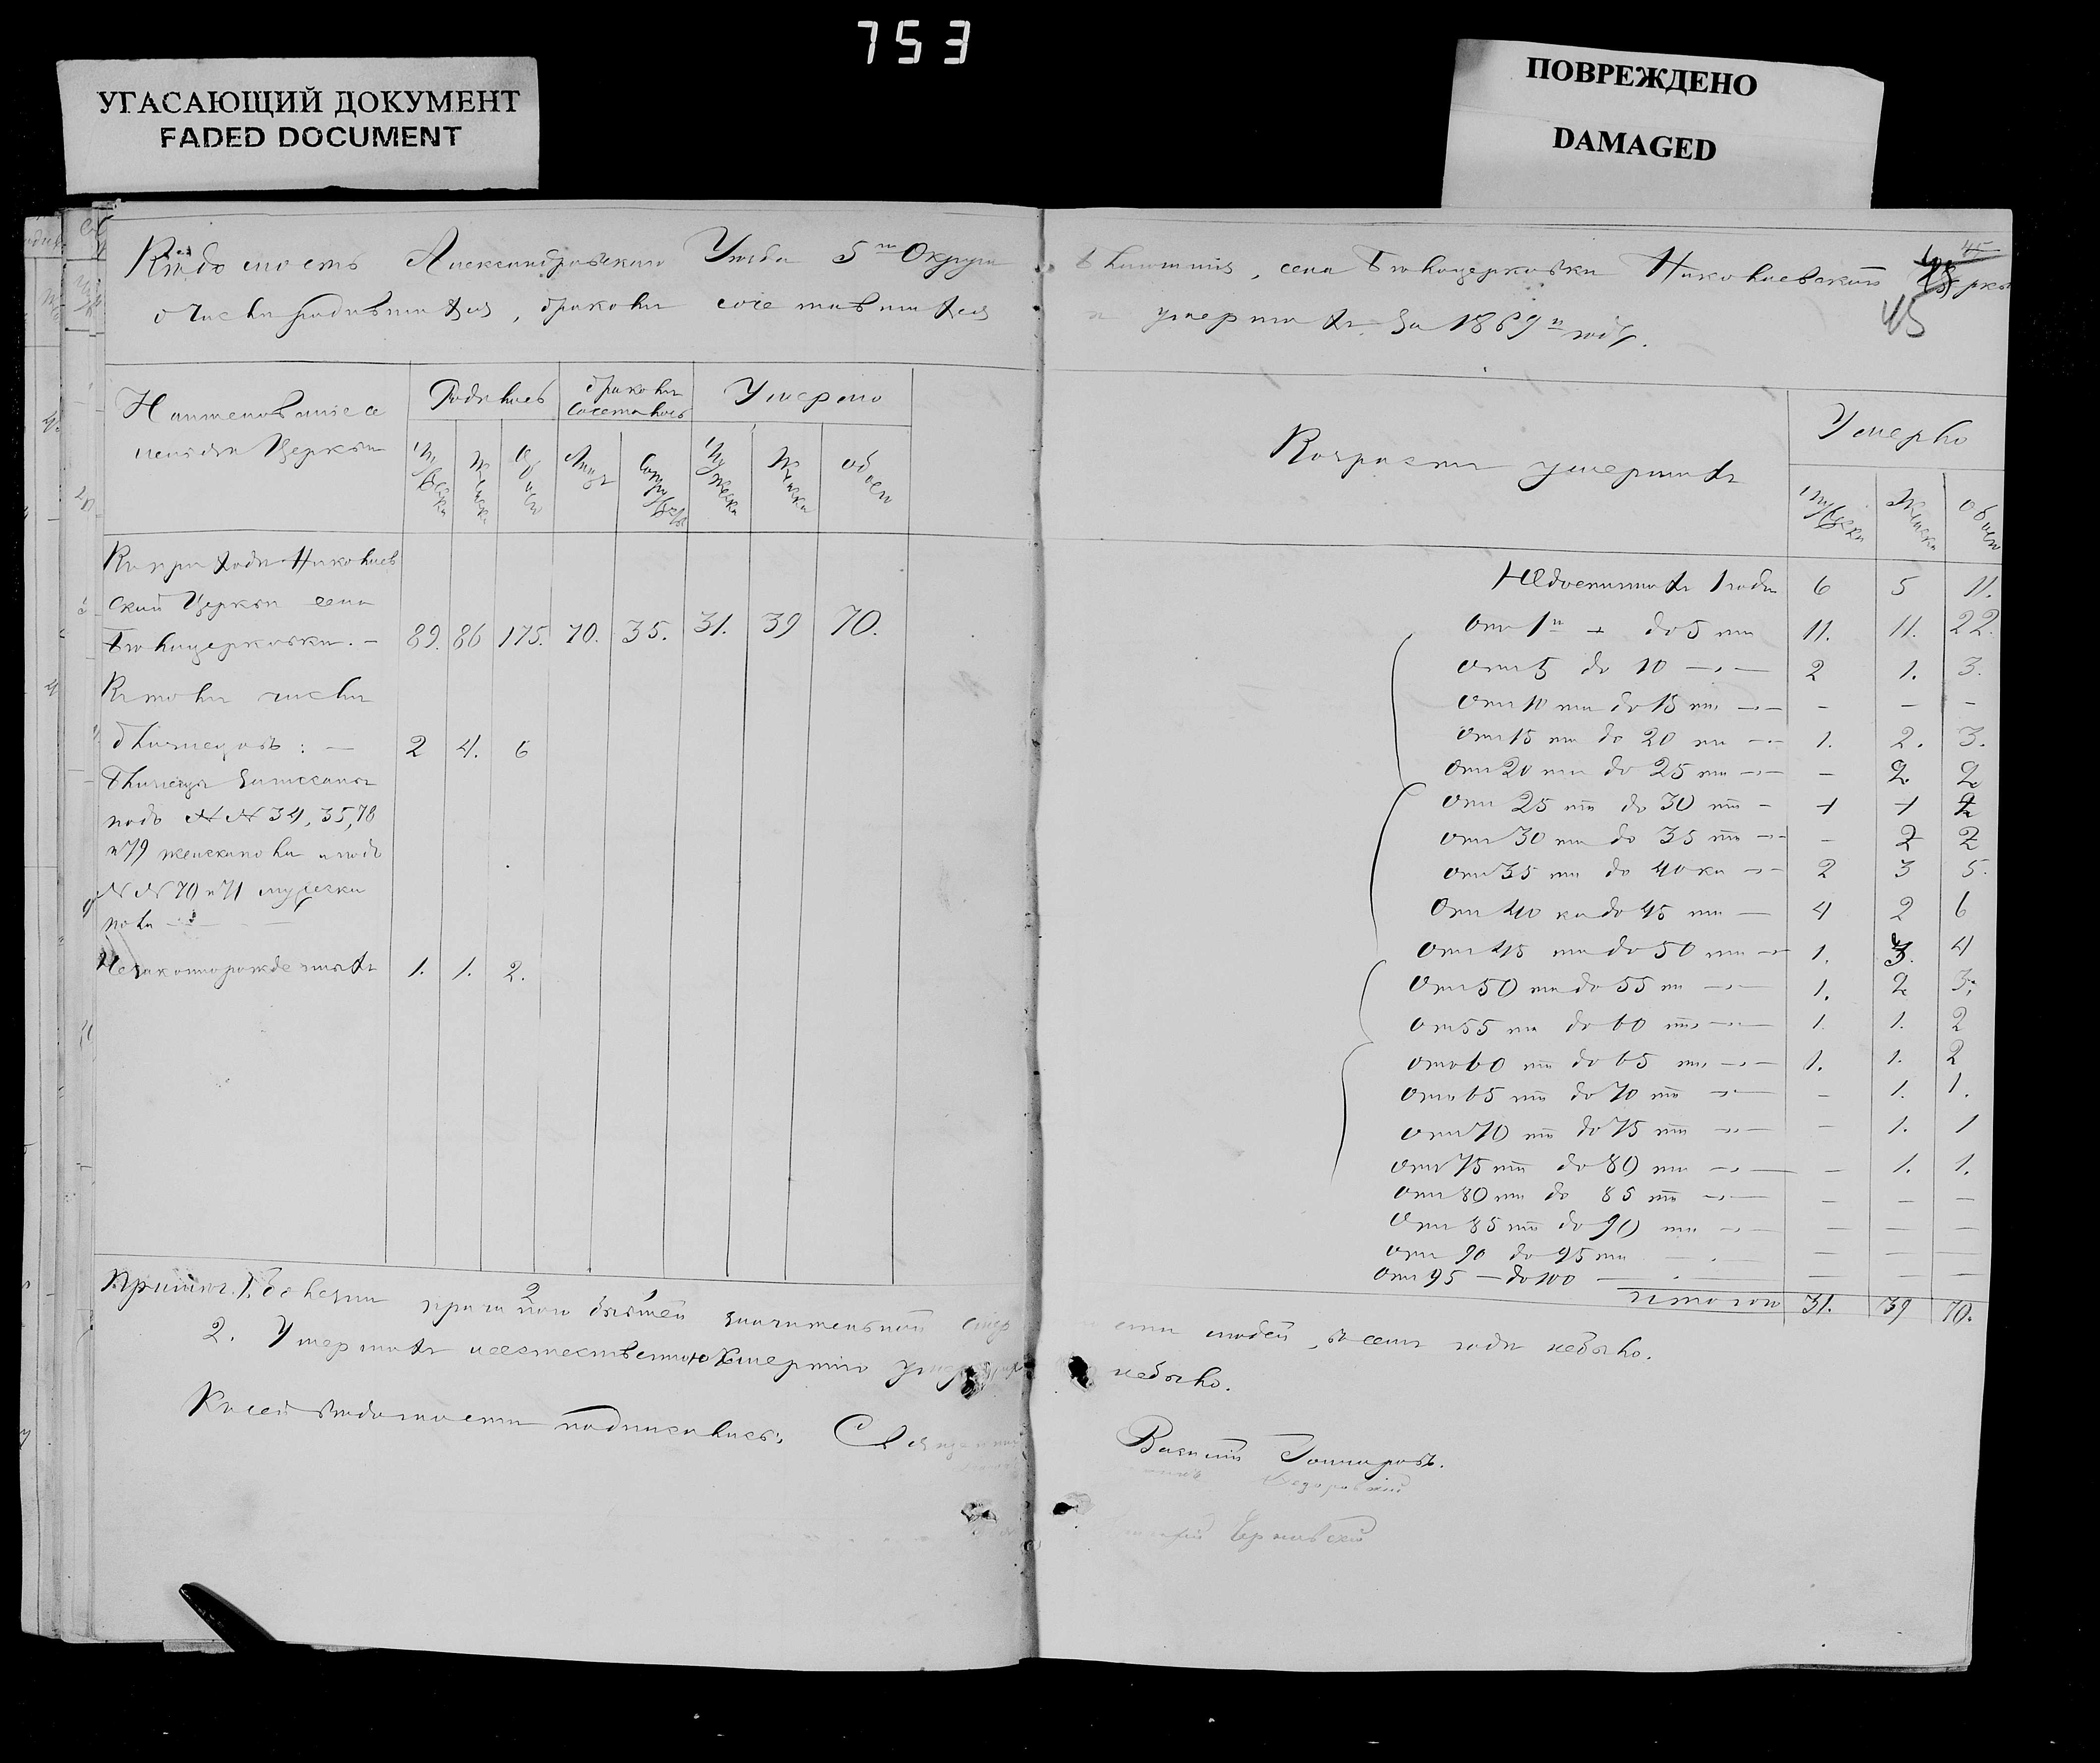 753
УГАСАЮЩИЙ ДОКУМЕНТ
FADED DOCUMENT
ПОВРЕЖДЕНО
DAMAGED
45
45
Вѣдомость Александровскаго Уѣзда 5го Округа Благочинія, села Бѣлоцерковки Николаевской Церкви
о числѣ родившихся, бракомъ сочетавшихся и умершихъ за 1869й годъ.
Наименованіе се
ленія и Церкви
Родилось
бракомъ сочеталось
Умерло
Мужеска
Женска
Обоего
Лицъ
Супружествъ
Мужеска
Женска
обоего
Въ приходѣ Николаев
ской Церкви села
Бѣлоцерковки. – 89. 86 175. 70. 35. 31. 39 70.
Въ томъ числѣ
близнецовъ: – 2 4. 6
Близнецы записаны
подъ №№ 34, 35, 78
и 79 женска пола и подъ
№№ 70 и 71 мужеска
пола
Незаконнорожденныхъ 1. 1. 2.
Возрастъ умершихъ
Умерло
Мужеска
Женска
Обоего
Недостигшихъ 1 года 6 5 11.
Отъ 1го до 5 ти 11. 11. 22.
Отъ 5 до 10 –„– 2 1. 3.
Отъ 10 ти до 15 ти –„– – – –
Отъ 15 ти до 20 ти –„– 1. 2. 3.
Отъ 20 ти до 25 ти –„– – 2 2
Отъ 25 ти до 30 ти – 1 1 2
Отъ 30 ти до 35 ти –„– – 2 2
Отъ 35 ти до 40 ка –„– 2 3 5.
Отъ 40 ка до 45 ти – 4 2 6
Отъ 45 ти до 50 ти –„– 1. 3. 4
Отъ 50 ти до 55 ти –„– 1. 2 3.
Отъ 55 ти до 60 ти –„– 1. 1. 2
Отъ 60 ти до 65 ти –„– 1. 1. 2
Отъ 65 ти до 70 ти –„– – 1. 1.
Отъ 70 ти до 75 ти –„– – 1. 1
Отъ 75 ти до 80 ти –„– – 1. 1.
Отъ 80 ти до 85 ти –„– – – –
Отъ 85 ти до 90 ти –„– – – –
Отъ 90 до 95 ти – – –
Отъ 95 – до 100 – – – –
Итого 31. 39 70.
Примѣч. 1. Болезни причиною бывшей значительной смертности людей, въ семъ году небыло.
2. Умершихъ неестественною смертію небыло.
Къ сей вѣдомости подписались: Священникъ Василій Гончаровъ.